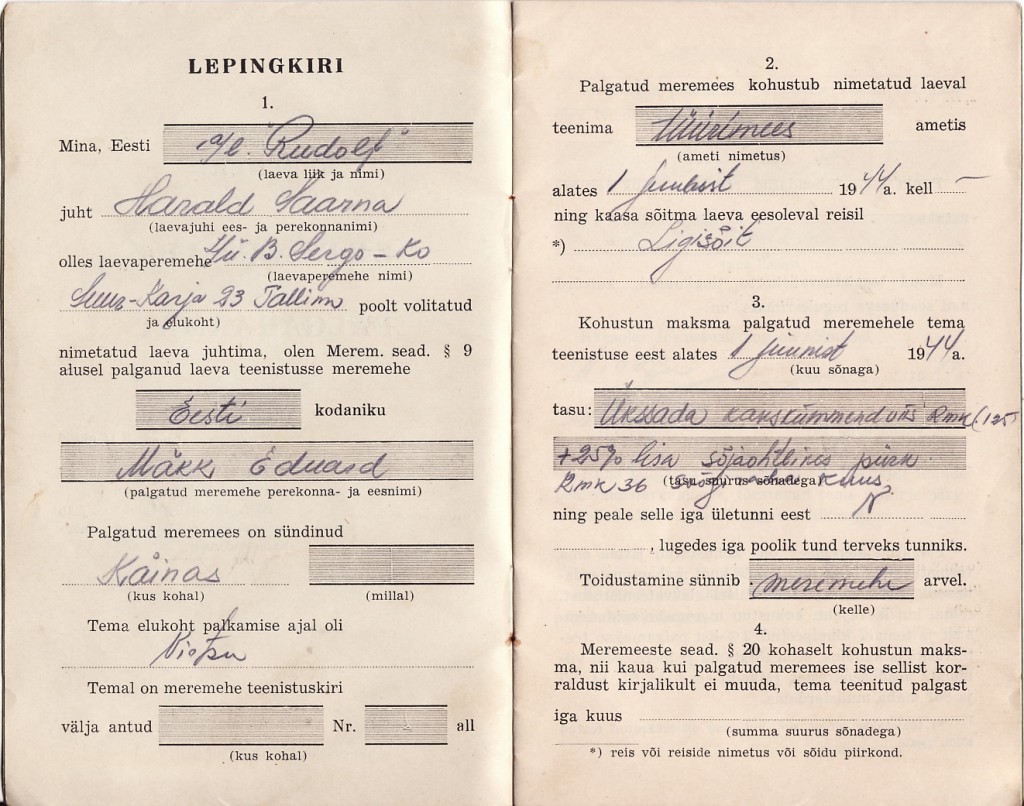 LEPINGKIRI
1.
Mina, Eesti "Rudolf"
(laeva liik ja nimi)
juht Harald Saarna
(laevajuhi ees- ja perekonnanimi)
olles laevaperemehe B. Sergo – Ko
(laevaperemehe nimi)
Suur-Karja 23 Tallinn poolt volitatud
ja elukoht)
nimetatud laeva juhtima, olen Merem. sead. § 9
alusel palganud laeva teenistusse meremehe
Eesti kodaniku
Mäkk Eduard
(palgatud meremehe perekonna- ja eesnimi)
Palgatud meremees on sündinud
Käinas
(kus kohal) (millal)
Tema elukoht palkamise ajal oli
Temal on meremehe teenistuskiri
välja antud Nr. all
(kus kohal)
2.
Palgatud meremees kohustub nimetatud laeval
teenima tüürimees ametis
(ameti nimetus)
alates 1 juunist 1944 a. kell —
ning kaasa sõitma laeva eesoleval reisil
*) Ligisõit
3.
Kohustun maksma palgatud meremehele tema
teenistuse eest alates 1 juunist 1944 a.
(kuu sõnaga)
tasu: Ükssada kakskümmend viis Rmk (125
+25% lisa sõjaohtlikus piirk.
(tasu suurus sõnadega)
Rmk 36 kuus
ning peale selle iga ületunni eest
, lugedes iga poolik tund terveks tunniks.
Toidustamine sünnib meremehe arvel.
(kelle)
4.
Meremeeste sead. § 20 kohaselt kohustun maks-
ma, nii kaua kui palgatud meremees ise sellist kor-
raldust kirjalikult ei muuda, tema teenitud palgast
iga kuus
(summa suurus sõnadega)
*) reis või reiside nimetus või sõidu piirkond.